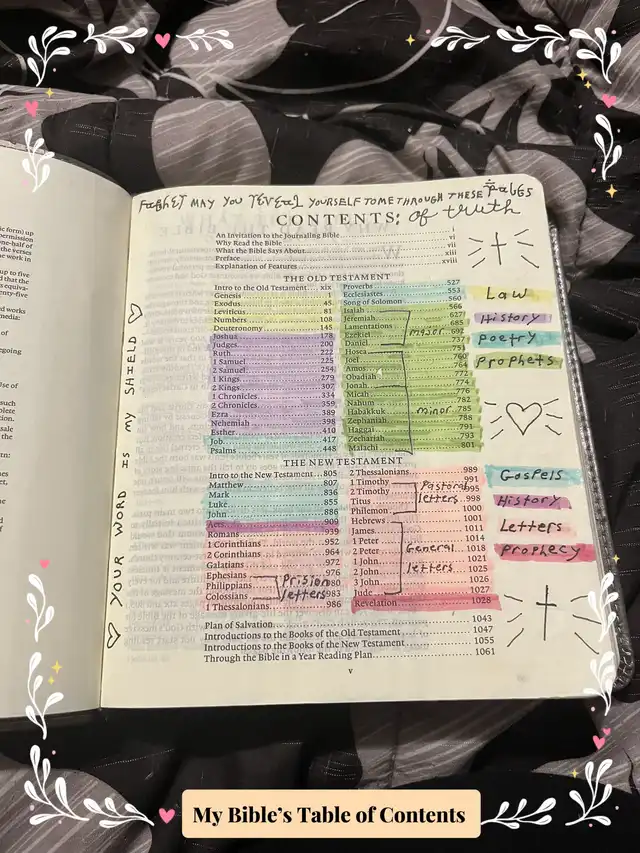 FATHER MAY YOU REVEAL YOURSELF TO ME THROUGH THESE PAGES
CONTENTS: of truth
An Invitation to the Journaling Bible vi
Why Read the Bible vii
What the Bible Says About xiii
Preface
Explanation of Features xviii
THE OLD TESTAMENT
Intro to the Old Testament xix
Genesis 1
Exodus 45
Leviticus 81
Numbers 108
Deuteronomy 145
Joshua 178
Judges 200
Ruth 222
1 Samuel 225
2 Samuel 254
1 Kings 279
2 Kings 307
1 Chronicles 334
2 Chronicles 359
Ezra 389
Nehemiah 398
Esther 410
Job 417
Psalms 448
Proverbs 527
Ecclesiastes 553
Song of Solomon 560
Isaiah 566
Jeremiah 627
Lamentations 685
Ezekiel 692
Daniel 737
major
Hosea 751
Joel 760
Amos 764
Obadiah 772
Jonah 774
Micah 776
Nahum 782
Habakkuk 785
Zephaniah 788
Haggai 791
Zechariah 793
Malachi 801
minor
Law
History
Poetry
Prophets
THE NEW TESTAMENT
Intro to the New Testament 805
Matthew 807
Mark 836
Luke 855
John 886
Acts 909
Romans 939
1 Corinthians 952
2 Corinthians 964
Galatians 972
Ephesians 976
Philippians 980
Colossians 983
1 Thessalonians 986
Prision
letters
2 Thessalonians 989
1 Timothy 991
2 Timothy 995
Titus 998
Philemon 1000
Pastoral
letters
Hebrews 1001
James 1011
1 Peter 1014
2 Peter 1018
1 John 1021
2 John 1025
3 John 1026
Jude 1027
General
letters
Revelation 1028
Gospels
History
Letters
Prophecy
Plan of Salvation 1043
Introductions to the Books of the Old Testament 1047
Introductions to the Books of the New Testament 1055
Through the Bible in a Year Reading Plan 1061
v
YOUR WORD IS MY SHIELD
My Bible's Table of Contents